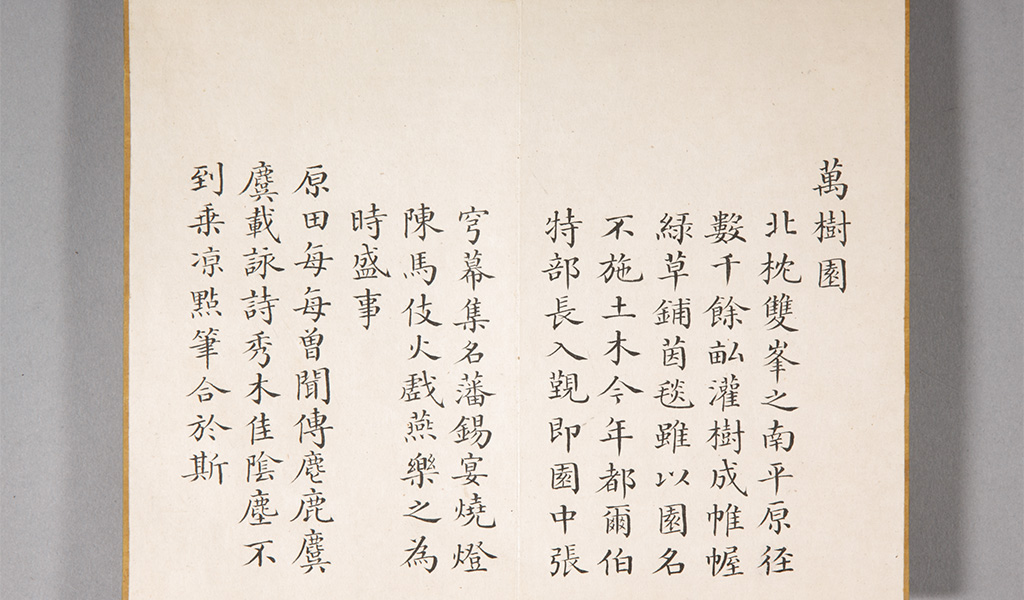 萬樹園
北枕雙峯之南平原徑
數千餘畝灌樹成帷幄
綠草鋪茵毯雖以園名
不施土木今年都爾伯
特部長入覲即園中張
穹幕集名藩錫宴燒燈
陳馬伎火戲燕樂之為
時盛事
原田每每曾聞傳麀鹿麌
麌載詠詩秀木佳陰塵不
到乗凉點筆合於斯